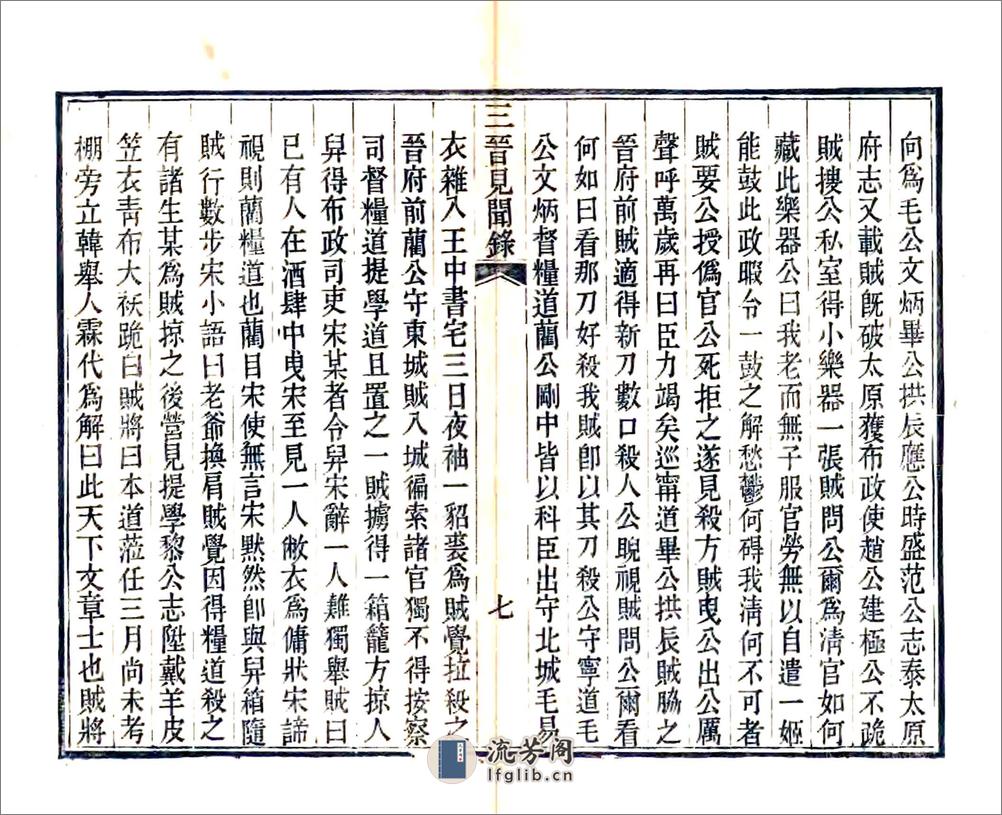 向爲毛公文炳畢公拱辰應公時盛范公志泰太原
府志又載賊旣破太原獲布政使趙公建極公不跪
賊搜公私室得小樂器一張賊問公爾爲清官如何
藏此樂器公曰我老而無子服官勞無以自遣一姬
能鼓此政暇令一鼓之解愁鬱何碍我淸何不可者
賊要公授僞官公死拒之遂見殺方賊曳公出公厲
聲呼萬歲再曰臣力竭矣巡甯道畢公拱辰賊脇之
晉府前賊適得新刀數口殺人公睨視賊問公爾看
何如曰看那刀好殺我賊卽以其刀殺公守寧道毛
公文炳督糧道藺公剛中皆以科臣出守北城毛易
三晉見聞錄
七
衣雜入王中書宅三日夜袖一貂裘爲賊覺拉殺之
晉府前藺公守東城賊入城徧索諸官獨不得按察
司督糧道提學道且置之一賊擄得一箱籠方掠人
舁得布政司吏宋某者令舁宋辭一人難獨舉賊曰
已有人在酒肆中曳宋至見一人敝衣爲傭狀宋諦
視則藺糧道也藺目宋使無言宋默然卽與舁箱隨
賊行數步宋小語曰老爺換肩賊覺因得糧道殺之
有諸生某爲賊掠之後營見提學黎公志陞戴羊皮
笠衣靑布大袄跪白賊將曰本道蒞任三月尚未考
棚旁立韓舉人霖代爲解曰此天下文章士也賊將
流芳阁
lfglib.cn